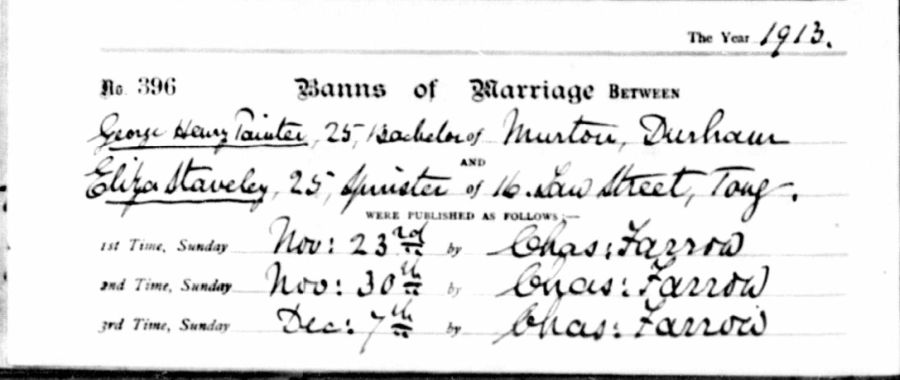 The Year 1913.
No. 396 Banns of Marriage BETWEEN
George Henry Painter, 25, Bachelor of Murton, Durham
AND
Eliza Staveley, 25, Spinster of 16. Law Street, Tong.
WERE PUBLISHED AS FOLLOWS:—
1st Time, Sunday Nov: 23rd by Chas: Farrow
2nd Time, Sunday Nov: 30th by Chas: Farrow
3rd Time, Sunday Dec: 7th by Chas: Farrow